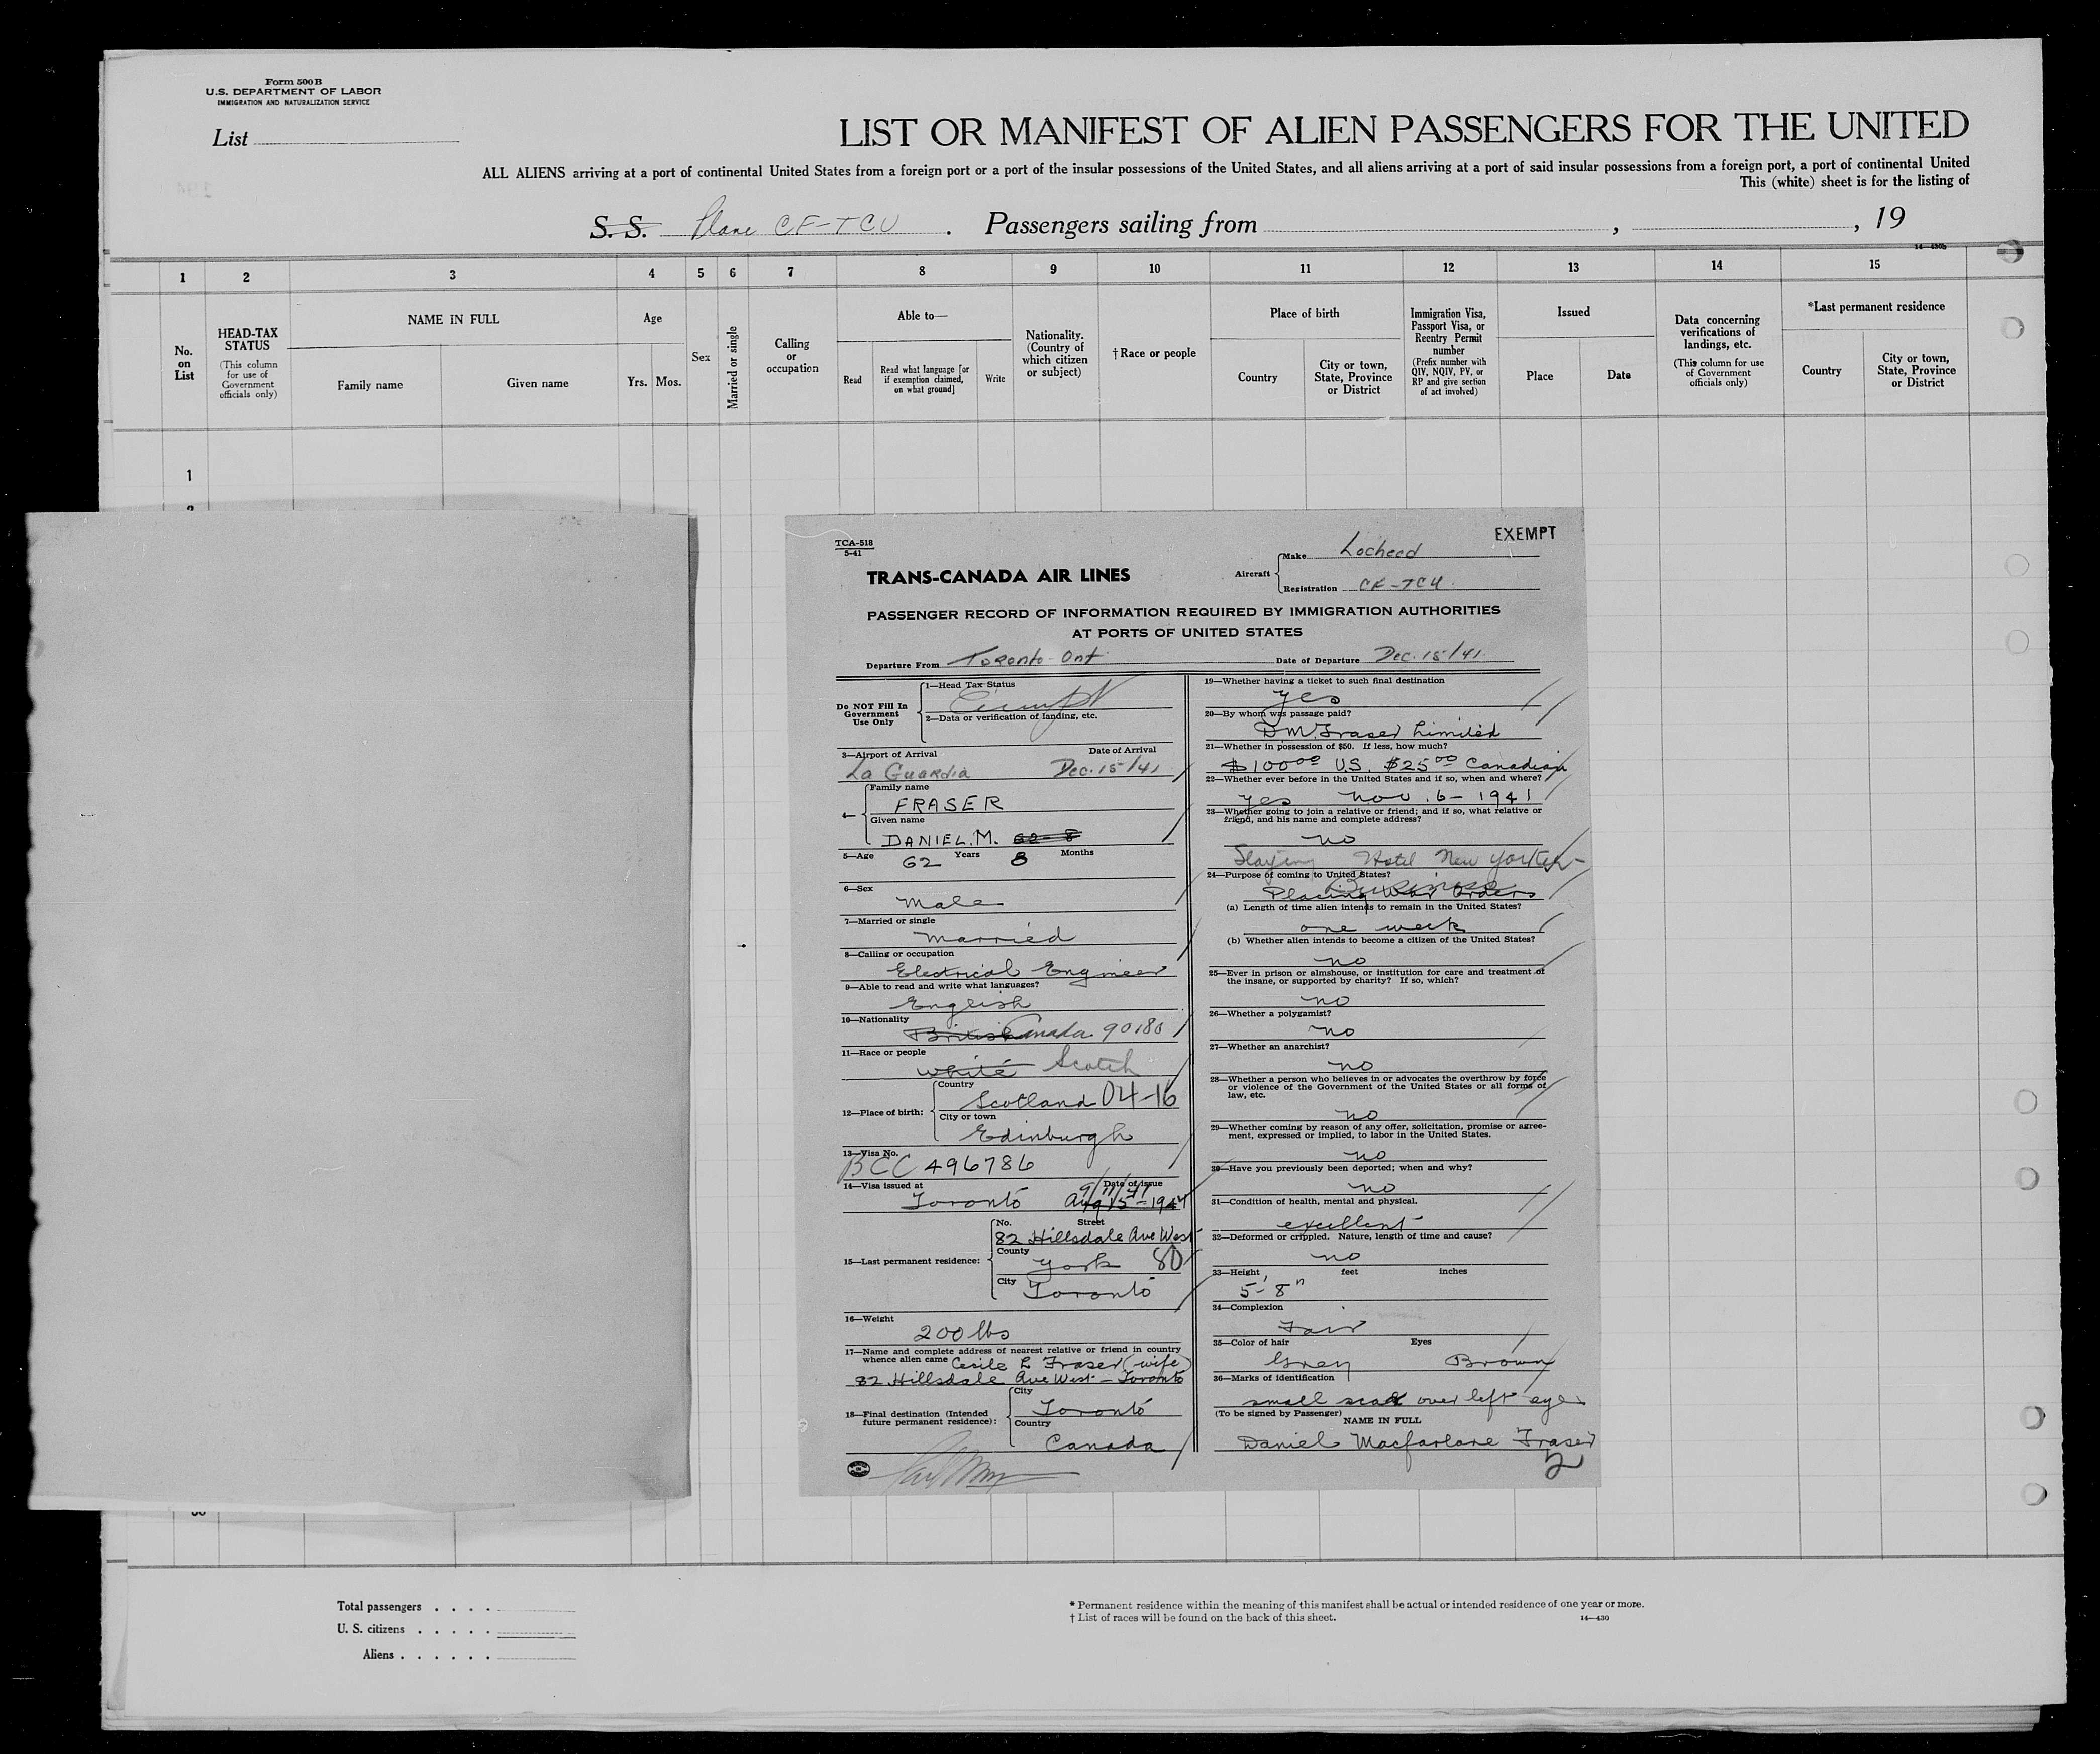 Form 500 B
U.S. DEPARTMENT OF LABOR
IMMIGRATION AND NATURALIZATION SERVICE
List
LIST OR MANIFEST OF ALIEN PASSENGERS FOR THE UNITED
ALL ALIENS arriving at a port of continental United States from a foreign port or a port of the insular possessions of the United States, and all aliens arriving at a port of said insular possessions from a foreign port, a port of continental United
This (white) sheet is for the listing of
S. S. Plane CF-TCU . Passengers sailing from , , 19
14—430b
1 2 3 4 5 6 7 8 9 10 11 12 13 14 15
No. on List
HEAD-TAX STATUS
(This column for use of Government officials only)
NAME IN FULL
Family name Given name
Age
Yrs. Mos.
Sex
Married or single
Calling or occupation
Able to—
Read
Read what language [or if exemption claimed, on what ground]
Write
Nationality. (Country of which citizen or subject)
† Race or people
Place of birth
Country
City or town, State, Province or District
Immigration Visa, Passport Visa, or Reentry Permit number
(Prefix number with QIV, NQIV, PV, or RP and give section of act involved)
Issued
Place Date
Data concerning verifications of landings, etc.
(This column for use of Government officials only)
*Last permanent residence
Country
City or town, State, Province or District
1
TCA-518
5-41
EXEMPT
TRANS-CANADA AIR LINES
Aircraft
Make Locheed
Registration CF-TCU.
PASSENGER RECORD OF INFORMATION REQUIRED BY IMMIGRATION AUTHORITIES
AT PORTS OF UNITED STATES
Departure From Toronto Ont Date of Departure Dec. 15/41.
Do NOT Fill In Government Use Only
1—Head Tax Status
Exempt
2—Data or verification of landing, etc.
3—Airport of Arrival Date of Arrival
La Guardia Dec. 15/41
4—
Family name
FRASER
Given name
DANIEL. M. 62-8
5—Age 62 Years 8 Months
6—Sex
Male
7—Married or single
Married
8—Calling or occupation
Electrical Engineer
9—Able to read and write what languages?
English
10—Nationality
British Canada 90180
11—Race or people
white Scotch
12—Place of birth:
Country
Scotland 04-16
City or town
Edinburgh
13—Visa No.
BCC 496786
14—Visa issued at Date of issue
9/11/41
Toronto Aug 15-1941
15—Last permanent residence:
No. Street
82 Hillsdale Ave West
County
York 80
City
Toronto
16—Weight
200 lbs
17—Name and complete address of nearest relative or friend in country
whence alien came Cecile L Fraser (wife)
82 Hillsdale Ave West - Toronto
18—Final destination (Intended future permanent residence):
City
Toronto
Country
Canada
19—Whether having a ticket to such final destination
yes
20—By whom was passage paid?
D M. Fraser Limited
21—Whether in possession of $50. If less, how much?
$100.00 U.S. $25.00 Canadian
22—Whether ever before in the United States and if so, when and where?
yes Nov. 6- 1941
23—Whether going to join a relative or friend; and if so, what relative or
friend, and his name and complete address?
no
Staying Hotel New Yorker-
24—Purpose of coming to United States?
Business
Placing War Orders
(a) Length of time alien intends to remain in the United States?
one week
(b) Whether alien intends to become a citizen of the United States?
no
25—Ever in prison or almshouse, or institution for care and treatment of
the insane, or supported by charity? If so, which?
no
26—Whether a polygamist?
no
27—Whether an anarchist?
no
28—Whether a person who believes in or advocates the overthrow by force
or violence of the Government of the United States or all forms of
law, etc.
no
29—Whether coming by reason of any offer, solicitation, promise or agree-
ment, expressed or implied, to labor in the United States.
no
30—Have you previously been deported; when and why?
no
31—Condition of health, mental and physical.
excellent
32—Deformed or crippled. Nature, length of time and cause?
no
33—Height, feet inches
5'-8"
34—Complexion
Fair
35—Color of hair Eyes
Grey Brown
36—Marks of identification
small scar over left eye
(To be signed by Passenger)
NAME IN FULL
Daniel Macfarlane Fraser
2
Total passengers . . . .
U. S. citizens . . . . .
Aliens . . . . . .
* Permanent residence within the meaning of this manifest shall be actual or intended residence of one year or more.
† List of races will be found on the back of this sheet.
14—430